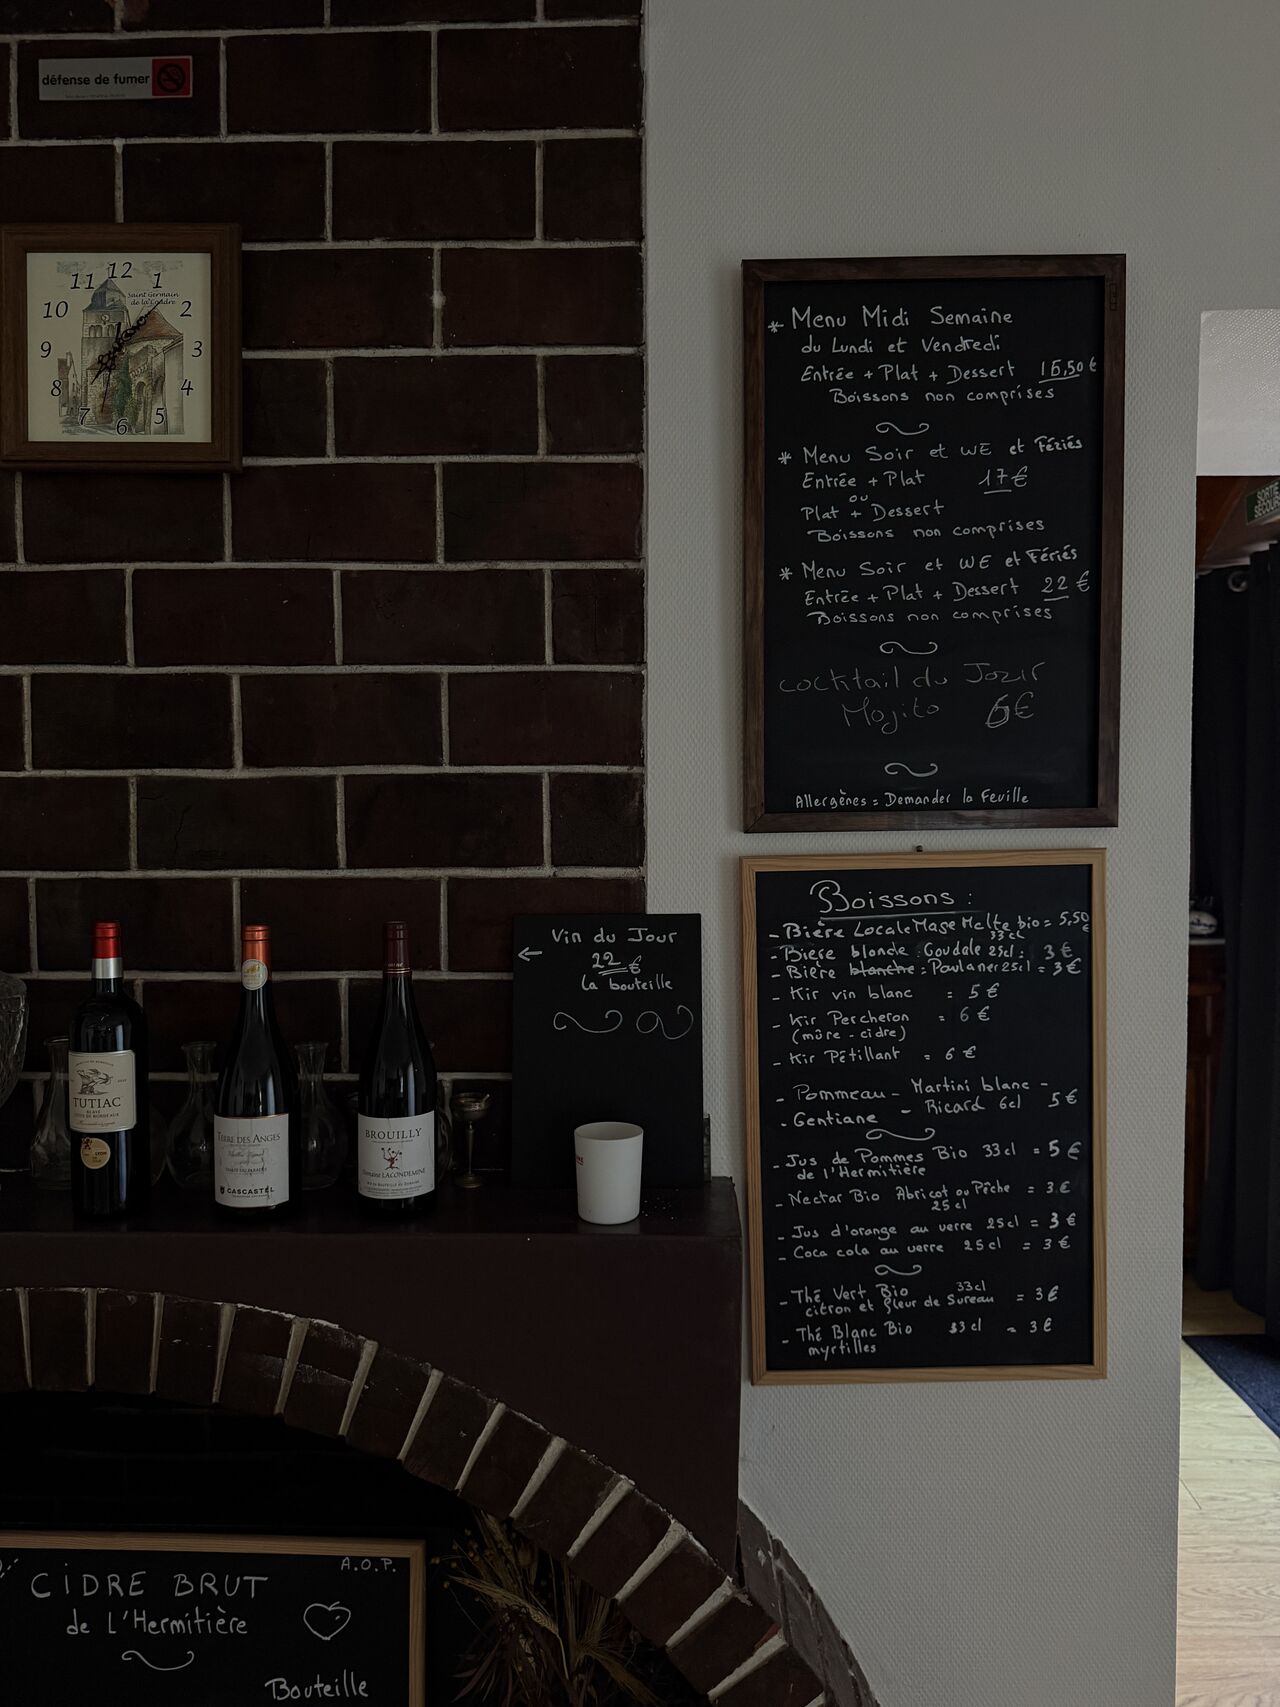 défense de fumer
12
11
1
10
2
9
3
8
4
7
5
6
Saint Germain
de la Coudre
* Menu Midi Semaine
du Lundi et Vendredi
Entrée + Plat + Dessert 16,50 €
Boissons non comprises
* Menu Soir et WE et Fériés
Entrée + Plat 17 €
ou
Plat + Dessert
Boissons non comprises
* Menu Soir et WE et Fériés
Entrée + Plat + Dessert 22 €
Boissons non comprises
Cocktail du Jour
Mojito 6€
Allergènes = Demander la Feuille
SORTIE
SECOURS
Boissons :
- Bière Locale Mage Malte bio = 5,50 €
33cl
- Bière blonde : Goudale 25cl : 3 €
- Bière blanche : Paulaner 25cl = 3 €
- Kir vin blanc = 5 €
- Kir Percheron = 6 €
(mûre - cidre)
- Kir Pétillant = 6 €
- Pommeau - Martini blanc -
- Gentiane - Ricard 6cl 5 €
- Jus de Pommes Bio 33cl = 5 €
de l'Hermitière
- Nectar Bio Abricot ou Pêche = 3 €
25cl
- Jus d'orange au verre 25cl = 3 €
- Coca cola au verre 25cl = 3 €
- Thé Vert Bio 33cl = 3€
citron et fleur de Sureau
- Thé Blanc Bio 33cl = 3€
myrtilles
Vin du Jour
22 €
la bouteille
TUTIAC
BLAYE
CÔTES DE BORDEAUX
LYON
TERRE DES ANGES
CASCASTEL
BROUILLY
Domaine LACONDEMINE
A.O.P.
CIDRE BRUT
de L'Hermitière
Bouteille